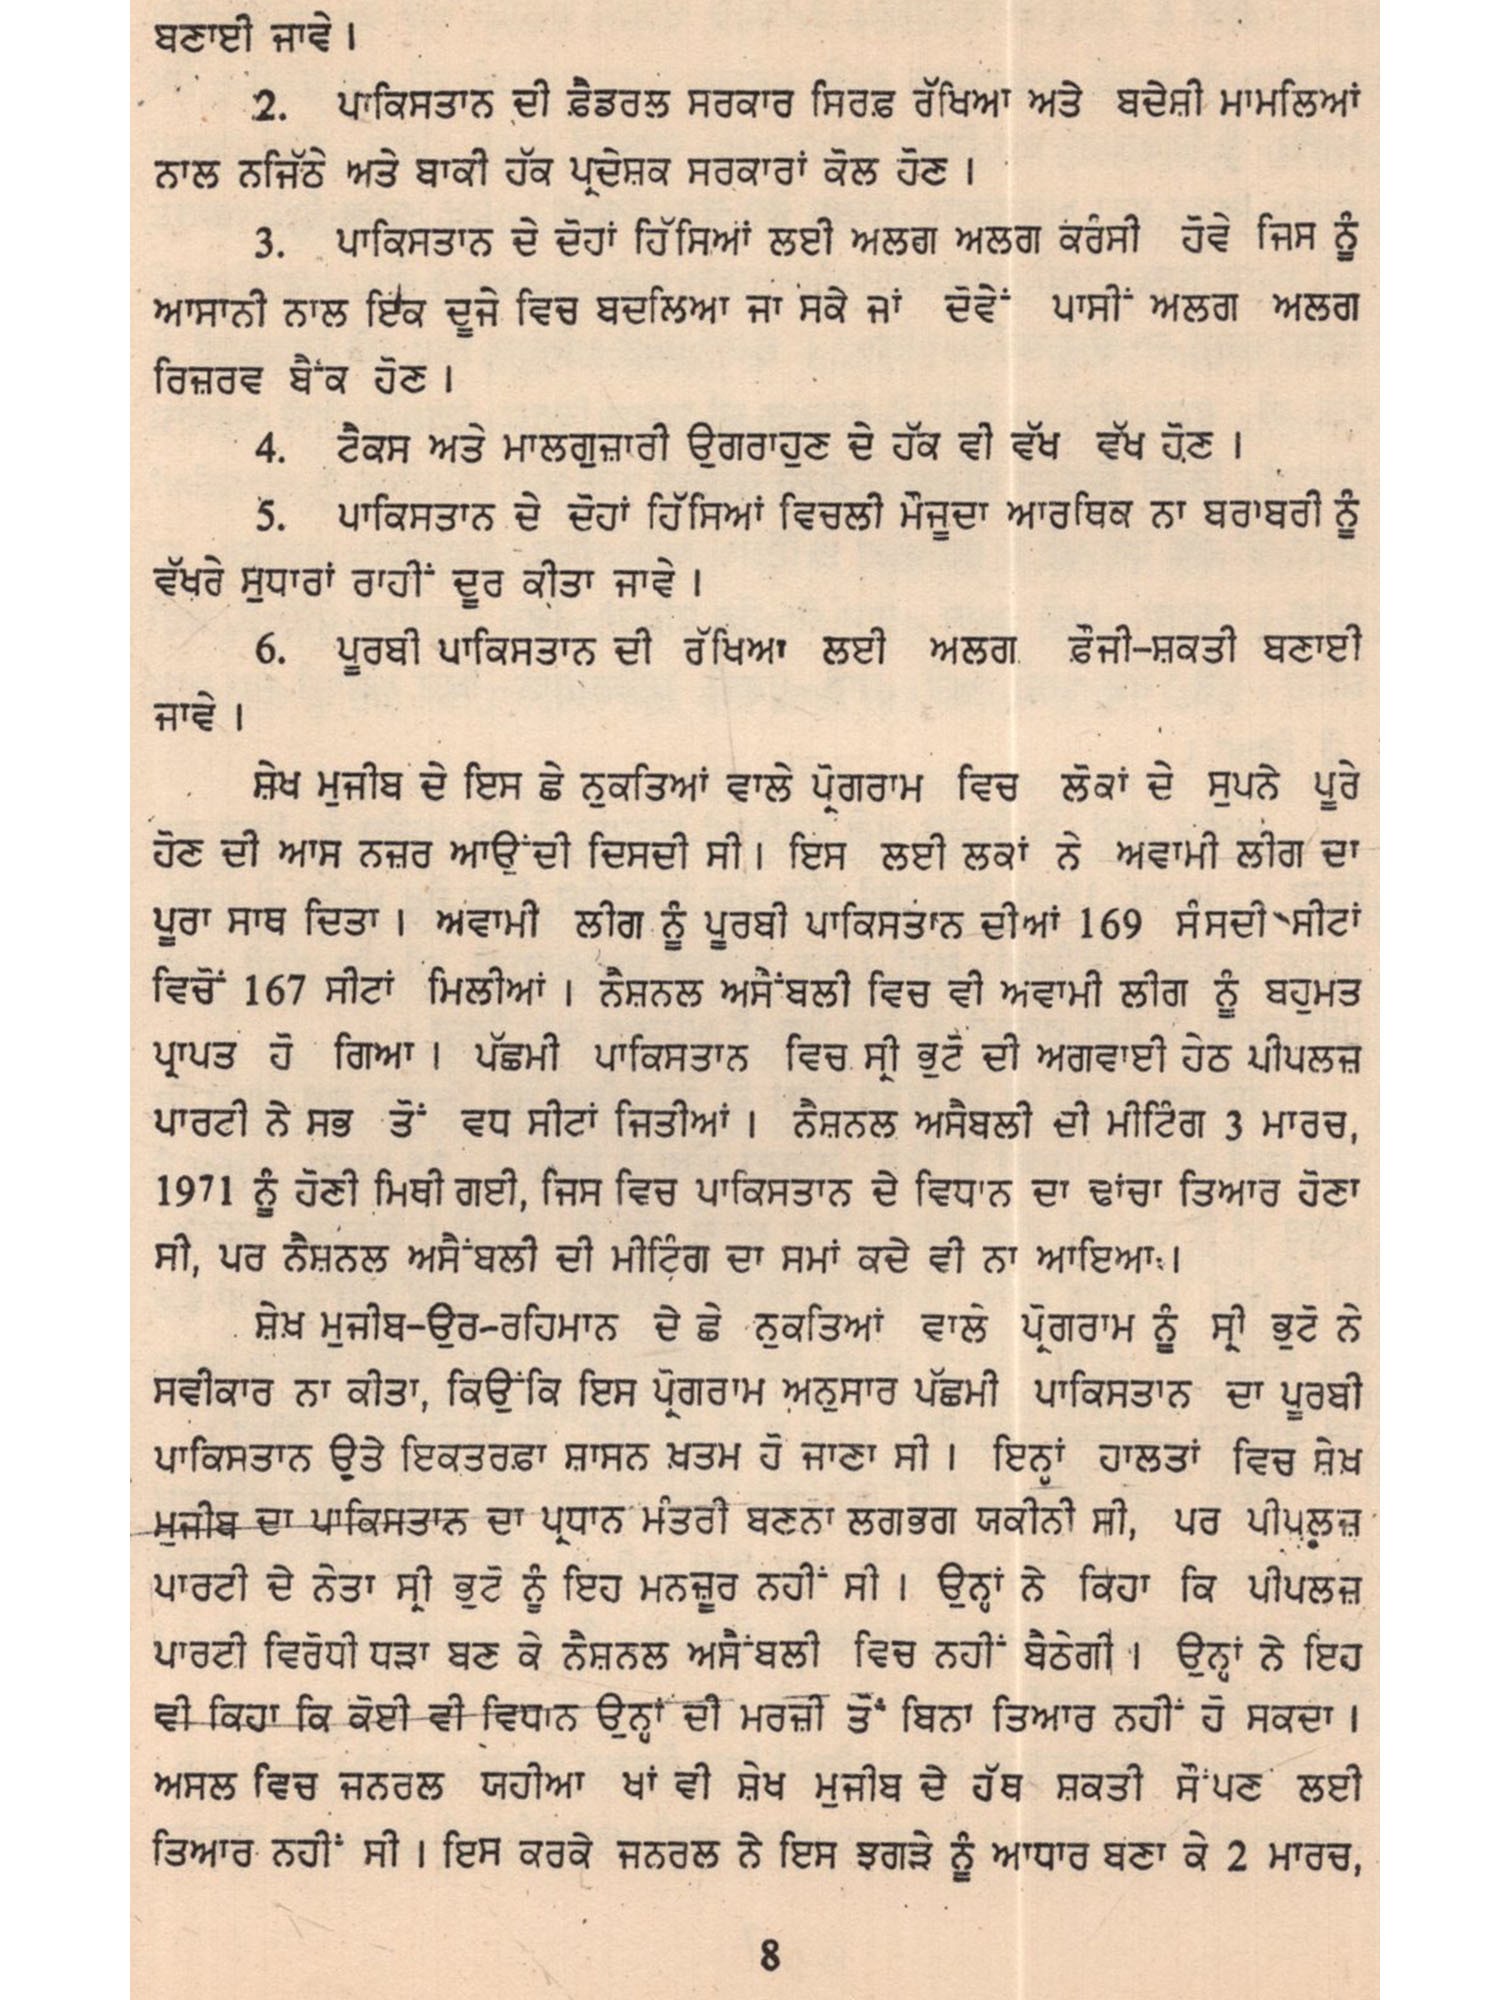 ਬਣਾਈ ਜਾਵੇ।
2. ਪਾਕਿਸਤਾਨ ਦੀ ਫ਼ੈਡਰਲ ਸਰਕਾਰ ਸਿਰਫ਼ ਰੱਖਿਆ ਅਤੇ ਬਦੇਸ਼ੀ ਮਾਮਲਿਆਂ
ਨਾਲ ਨਜਿੱਠੇ ਅਤੇ ਬਾਕੀ ਹੱਕ ਪ੍ਰਦੇਸ਼ਕ ਸਰਕਾਰਾਂ ਕੋਲ ਹੋਣ।
3. ਪਾਕਿਸਤਾਨ ਦੇ ਦੋਹਾਂ ਹਿੱਸਿਆਂ ਲਈ ਅਲਗ ਅਲਗ ਕਰੰਸੀ ਹੋਵੇ ਜਿਸ ਨੂੰ
ਆਸਾਨੀ ਨਾਲ ਇਕ ਦੂਜੇ ਵਿਚ ਬਦਲਿਆ ਜਾ ਸਕੇ ਜਾਂ ਦੋਵੇਂ ਪਾਸੀਂ ਅਲਗ ਅਲਗ
ਰਿਜ਼ਰਵ ਬੈਂਕ ਹੋਣ।
4. ਟੈਕਸ ਅਤੇ ਮਾਲਗੁਜ਼ਾਰੀ ਉਗਰਾਹੁਣ ਦੇ ਹੱਕ ਵੀ ਵੱਖ ਵੱਖ ਹੋਣ।
5. ਪਾਕਿਸਤਾਨ ਦੇ ਦੋਹਾਂ ਹਿੱਸਿਆਂ ਵਿਚਲੀ ਮੌਜੂਦਾ ਆਰਥਿਕ ਨਾ ਬਰਾਬਰੀ ਨੂੰ
ਵੱਖਰੇ ਸੁਧਾਰਾਂ ਰਾਹੀਂ ਦੂਰ ਕੀਤਾ ਜਾਵੇ।
6. ਪੂਰਬੀ ਪਾਕਿਸਤਾਨ ਦੀ ਰੱਖਿਆ ਲਈ ਅਲਗ ਫ਼ੌਜੀ-ਸ਼ਕਤੀ ਬਣਾਈ
ਜਾਵੇ।
ਸ਼ੇਖ ਮੁਜੀਬ ਦੇ ਇਸ ਛੇ ਨੁਕਤਿਆਂ ਵਾਲੇ ਪ੍ਰੋਗਰਾਮ ਵਿਚ ਲੋਕਾਂ ਦੇ ਸੁਪਨੇ ਪੂਰੇ
ਹੋਣ ਦੀ ਆਸ ਨਜ਼ਰ ਆਉਂਦੀ ਦਿਸਦੀ ਸੀ। ਇਸ ਲਈ ਲਕਾਂ ਨੇ ਅਵਾਮੀ ਲੀਗ ਦਾ
ਪੂਰਾ ਸਾਥ ਦਿਤਾ। ਅਵਾਮੀ ਲੀਗ ਨੂੰ ਪੂਰਬੀ ਪਾਕਿਸਤਾਨ ਦੀਆਂ 169 ਸੰਸਦੀ ਸੀਟਾਂ
ਵਿਚੋਂ 167 ਸੀਟਾਂ ਮਿਲੀਆਂ। ਨੈਸ਼ਨਲ ਅਸੈਂਬਲੀ ਵਿਚ ਵੀ ਅਵਾਮੀ ਲੀਗ ਨੂੰ ਬਹੁਮਤ
ਪ੍ਰਾਪਤ ਹੋ ਗਿਆ। ਪੱਛਮੀ ਪਾਕਿਸਤਾਨ ਵਿਚ ਸ੍ਰੀ ਭੁਟੋ ਦੀ ਅਗਵਾਈ ਹੇਠ ਪੀਪਲਜ਼
ਪਾਰਟੀ ਨੇ ਸਭ ਤੋਂ ਵਧ ਸੀਟਾਂ ਜਿਤੀਆਂ। ਨੈਸ਼ਨਲ ਅਸੈਬਲੀ ਦੀ ਮੀਟਿੰਗ 3 ਮਾਰਚ,
1971 ਨੂੰ ਹੋਣੀ ਮਿਥੀ ਗਈ, ਜਿਸ ਵਿਚ ਪਾਕਿਸਤਾਨ ਦੇ ਵਿਧਾਨ ਦਾ ਢਾਂਚਾ ਤਿਆਰ ਹੋਣਾ
ਸੀ, ਪਰ ਨੈਸ਼ਨਲ ਅਸੈਂਬਲੀ ਦੀ ਮੀਟਿੰਗ ਦਾ ਸਮਾਂ ਕਦੇ ਵੀ ਨਾ ਆਇਆ।
ਸ਼ੇਖ਼ ਮੁਜੀਬ-ਉਰ-ਰਹਿਮਾਨ ਦੇ ਛੇ ਨੁਕਤਿਆਂ ਵਾਲੇ ਪ੍ਰੋਗਰਾਮ ਨੂੰ ਸ੍ਰੀ ਭੁਟੋ ਨੇ
ਸਵੀਕਾਰ ਨਾ ਕੀਤਾ, ਕਿਉਂਕਿ ਇਸ ਪ੍ਰੋਗਰਾਮ ਅਨੁਸਾਰ ਪੱਛਮੀ ਪਾਕਿਸਤਾਨ ਦਾ ਪੂਰਬੀ
ਪਾਕਿਸਤਾਨ ਉਤੇ ਇਕਤਰਫ਼ਾ ਸ਼ਾਸਨ ਖ਼ਤਮ ਹੋ ਜਾਣਾ ਸੀ। ਇਨ੍ਹਾਂ ਹਾਲਤਾਂ ਵਿਚ ਸ਼ੇਖ਼
ਮੁਜੀਬ ਦਾ ਪਾਕਿਸਤਾਨ ਦਾ ਪ੍ਰਧਾਨ ਮੰਤਰੀ ਬਣਨਾ ਲਗਭਗ ਯਕੀਨੀ ਸੀ, ਪਰ ਪੀਪਲਜ਼
ਪਾਰਟੀ ਦੇ ਨੇਤਾ ਸ੍ਰੀ ਭੁਟੋ ਨੂੰ ਇਹ ਮਨਜ਼ੂਰ ਨਹੀਂ ਸੀ। ਉਨ੍ਹਾਂ ਨੇ ਕਿਹਾ ਕਿ ਪੀਪਲਜ਼
ਪਾਰਟੀ ਵਿਰੋਧੀ ਧੜਾ ਬਣ ਕੇ ਨੈਸ਼ਨਲ ਅਸੈਂਬਲੀ ਵਿਚ ਨਹੀਂ ਬੈਠੇਗੀ। ਉਨ੍ਹਾਂ ਨੇ ਇਹ
ਵੀ ਕਿਹਾ ਕਿ ਕੋਈ ਵੀ ਵਿਧਾਨ ਉਨ੍ਹਾਂ ਦੀ ਮਰਜ਼ੀ ਤੋਂ ਬਿਨਾ ਤਿਆਰ ਨਹੀਂ ਹੋ ਸਕਦਾ।
ਅਸਲ ਵਿਚ ਜਨਰਲ ਯਹੀਆ ਖਾਂ ਵੀ ਸ਼ੇਖ ਮੁਜੀਬ ਦੇ ਹੱਥ ਸ਼ਕਤੀ ਸੌਂਪਣ ਲਈ
ਤਿਆਰ ਨਹੀਂ ਸੀ। ਇਸ ਕਰਕੇ ਜਨਰਲ ਨੇ ਇਸ ਝਗੜੇ ਨੂੰ ਆਧਾਰ ਬਣਾ ਕੇ 2 ਮਾਰਚ,
8